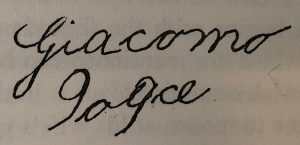 Giacomo
Joyce